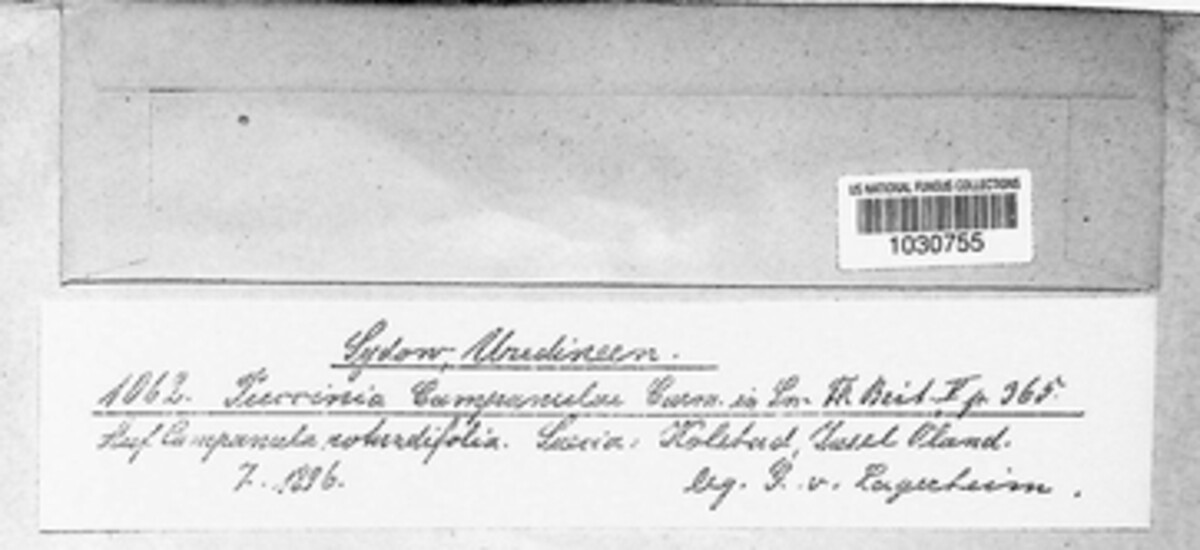 US NATIONAL FUNGUS COLLECTIONS
1030755
Sydow, Uredineen.
1062. Puccinia Campanulae Carm. in Sm. Fl. Brit. V p. 365.
Auf Campanula rotundifolia. Suecia: Kolstad, Insel Öland.
7. 1896. leg. G. v. Lagerheim.